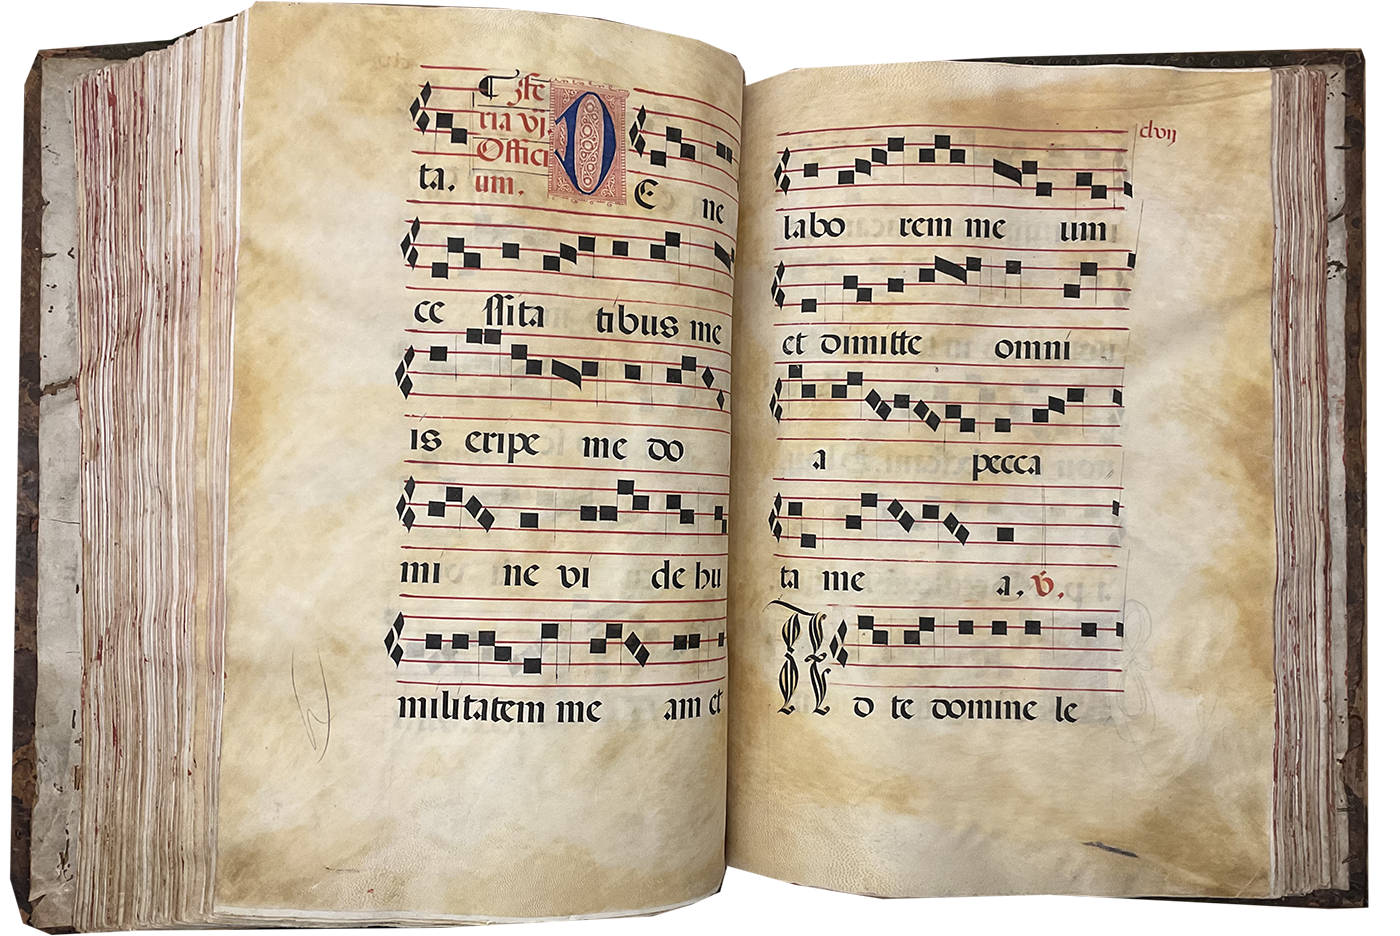 ¶ Fe
ria vj.
Offici
ta. um. DE ne
ce ssita tibus me
is eripe me do
mi ne vi de hu
militatem me am et
clvij
labo rem me um
et dimitte omni
a pecca
ta me a. v.
AD te domine le